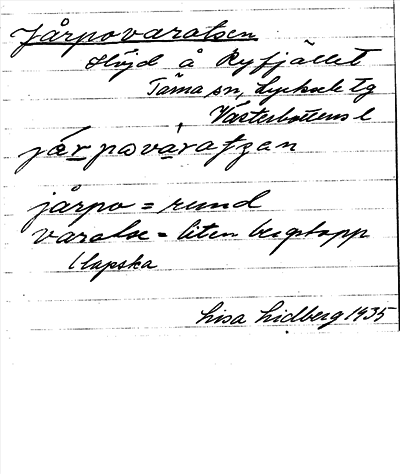 Jårpovaratsen
Höjd å Ryfjället
Tärna sn, Lycksele tg
Västerbottens l
jårpovàratzan
jårpo = rund
varatse = liten bergstopp
lapska
Lisa Lidberg 1935